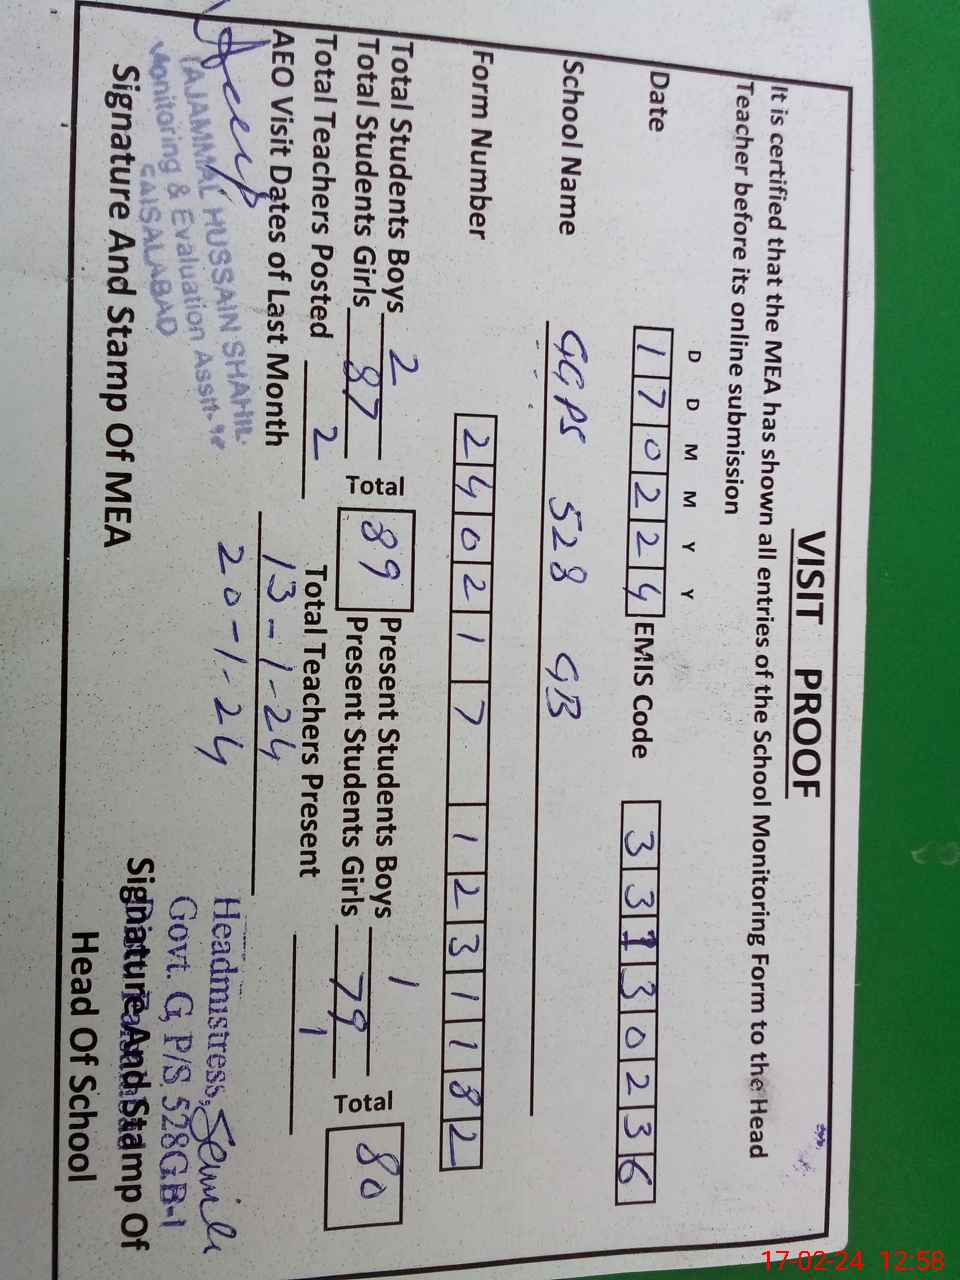 VISIT PROOF
It is certified that the MEA has shown all entries of the School Monitoring Form to the Head
Teacher before its online submission
D D M M Y Y
Date 170224 EMIS Code 33130236
School Name GGPS 528 GB
Form Number 240217 12311182
Total Students Boys 2 Total 89 Present Students Boys 1 Total 80
Total Students Girls 87 Present Students Girls 79
Total Teachers Posted 2 Total Teachers Present 1
AEO Visit Dates of Last Month 13-1-24
20-1-24
TAJAMMAL HUSSAIN SHAHI
Monitoring & Evaluation Assit-
FAISALABAD
Signature And Stamp Of MEA
Headmistress,
Govt. G, P/S 528GB-1
Signature And Stamp Of
Head Of School
17-02-24 12:58